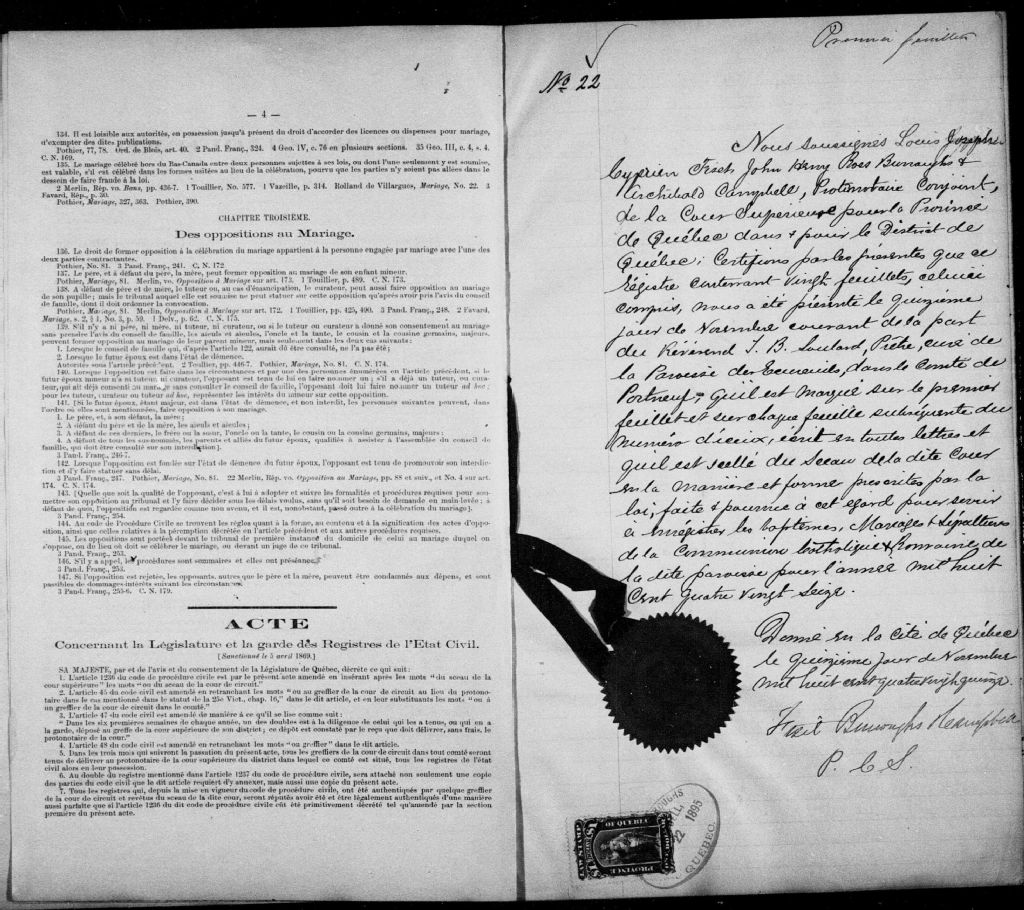 — 4 —
134. Il est loisible aux autorités, en possession jusqu'à présent du droit d'accorder des licences ou dispenses pour mariage,
d'exempter des dites publications.
Pothier, 77, 78. Ord. de Blois, art. 40. 2 Pand. Franç., 324. 4 Geo. IV, c. 76 en plusieurs sections. 35 Geo. III, c. 4, s. 4.
C. N. 169.
135. Le mariage célébré hors du Bas-Canada entre deux personnes sujettes à ses lois, ou dont l'une seulement y est soumise,
est valable, s'il est célébré dans les formes usitées au lieu de la célébration, pourvu que les parties n'y soient pas allées dans le
dessein de faire fraude à la loi.
2 Merlin, Rép. vo. Bans, pp. 436-7. 1 Touillier, No. 577. 1 Vazeille, p. 314. Rolland de Villargues, Mariage, No. 22. 3
Favard, Rép., p. 50.
Pothier, Mariage, 327, 363. Pothier, 390.
CHAPITRE TROISIÈME.
Des oppositions au Mariage.
136. Le droit de former opposition à la célébration du mariage appartient à la personne engagée par mariage avec l'une des
deux parties contractantes.
Pothier, No. 81. 3 Pand. Franç., 241. C. N. 172.
137. Le père, et à défaut du père, la mère, peut former opposition au mariage de son enfant mineur.
Pothier, Mariage, 81. Merlin, vo. Opposition à Mariage sur art. 173. 1 Touillier, p. 489. C. N. 173.
138. A défaut de père et de mère, le tuteur ou, au cas d'émancipation, le curateur, peut aussi faire opposition au mariage
de son pupille; mais le tribunal auquel elle est soumise ne peut statuer sur cette opposition qu'après avoir pris l'avis du conseil
de famille, dont il doit ordonner la convocation.
Pothier, Mariage, 81. Merlin, Opposition à Mariage sur art. 172. 1 Touillier, pp. 425, 490. 3 Pand. Franç., 248. 2 Favard,
Mariage, s. 2, § 1, No. 3, p. 59. 1 Delv., p. 62. C. N. 175.
139. S'il n'y a ni père, ni mère, ni tuteur, ni curateur, ou si le tuteur ou curateur a donné son consentement au mariage
sans prendre l'avis du conseil de famille, les aïeuls et aïeules, l'oncle et la tante, le cousin et la cousine germains, majeurs,
peuvent former opposition au mariage de leur parent mineur, mais seulement dans les deux cas suivants:
1. Lorsque le conseil de famille qui, d'après l'article 122, aurait dû être consulté, ne l'a pas été;
2. Lorsque le futur époux est dans l'état de démence.
Autorités sous l'article précédent. 2 Touillier, pp. 446-7. Pothier, Mariage, No. 81. C. N. 174.
140. Lorsque l'opposition est faite dans les circonstances et par une des personnes énumérées en l'article précédent, si le
futur époux mineur n'a ni tuteur, ni curateur, l'opposant est tenu de lui en faire nommer un; s'il a déjà un tuteur, ou cura-
teur, qui ait déjà consenti au mariage sans consulter le conseil de famille, l'opposant doit lui faire nommer un tuteur ad hoc;
pour les tuteur, curateur ou tuteur ad hoc, représenter les intérêts du mineur sur cette opposition.
141. [Si le futur époux, étant majeur, est dans l'état de démence, et non interdit, les personnes suivantes peuvent, dans
l'ordre où elles sont mentionnées, faire opposition à son mariage.
1. Le père, et, à son défaut, la mère;
2. A défaut du père et de la mère, les aïeuls et aïeules;
3. A défaut de ces derniers, le frère ou la sœur, l'oncle ou la tante, le cousin ou la cousine germains, majeurs;
4. A défaut de tous les sus-nommés, les parents et alliés du futur époux, qualifiés à assister à l'assemblée du conseil de
famille, qui doit être consulté sur son interdiction].
3 Pand. Franç., 246-7.
142. Lorsque l'opposition est fondée sur l'état de démence du futur époux, l'opposant est tenu de promouvoir son interdic-
tion et d'y faire statuer sans délai.
3 Pand. Franç., 247. Pothier, Mariage, No. 81. 22 Merlin, Rép. vo. Opposition au Mariage, pp. 88 et suiv., et No. 4 sur art.
174. C. N. 174.
143. [Quelque soit la qualité de l'opposant, c'est à lui à adopter et suivre les formalités et procédures requises pour sou-
mettre son opposition au tribunal et l'y faire décider sous les délais voulus, sans qu'il soit besoin de demande en main levée; à
défaut de quoi, l'opposition est regardée comme non avenue, et il est, nonobstant, passé outre à la célébration du mariage].
3 Pand. Franç., 254.
144. Au code de Procédure Civile se trouvent les règles quant à la forme, au contenu et à la signification des actes d'oppo-
sition, ainsi que celles relatives à la péremption décrétée en l'article précédent et aux autres procédures requises.
145. Les oppositions sont portées devant le tribunal de première instance du domicile de celui au mariage duquel on
s'oppose, ou du lieu où doit se célébrer le mariage, ou devant un juge de ce tribunal.
3 Pand. Franç., 253.
146. S'il y a appel, les procédures sont sommaires et elles ont préséance.
3 Pand. Franç., 253.
147. Si l'opposition est rejetée, les opposants, autres que le père et la mère, peuvent être condamnés aux dépens, et sont
passibles de dommages-intérêts suivant les circonstances.
3 Pand. Franç., 255-6. C. N. 179.
ACTE
Concernant la Législature et la garde des Registres de l'Etat Civil.
[Sanctionné le 5 avril 1869.]
SA MAJESTÉ, par et de l'avis et du consentement de la Législature de Québec, décrète ce qui suit:
1. L'article 1236 du code de procédure civile est par le présent acte amendé en insérant après les mots "du sceau de la
cour supérieure" les mots "ou du sceau de la cour de circuit."
2. L'article 45 du code civil est amendé en retranchant les mots "ou au greffier de la cour de circuit au lieu du protono-
taire dans le cas mentionné dans le statut de la 25e Vict., chap. 16," dans le dit article, et en leur substituant les mots "ou à
un greffier de la cour de circuit dans le comté."
3. L'article 47 du code civil est amendé de manière à ce qu'il se lise comme suit:
"Dans les six premières semaines de chaque année, un des doubles est à la diligence de celui qui les a tenus, ou qui en a
la garde, déposé au greffe de la cour supérieure de son district; ce dépôt est constaté par le reçu que doit délivrer, sans frais, le
protonotaire de la cour."
4. L'article 48 du code civil est amendé en retranchant les mots "ou greffier" dans le dit article.
5. Dans les trois mois qui suivront la passation du présent acte, tous les greffiers de la cour de circuit dans tout comté seront
tenus de délivrer au protonotaire de la cour supérieure du district dans lequel ce comté est situé, tous les registres de l'état
civil alors en leur possession.
6. Au double du registre mentionné dans l'article 1237 du code de procédure civile, sera attaché non seulement une copie
des parties du code civil que le dit article requiert d'y annexer, mais aussi une copie du présent acte.
7. Tous les registres qui, depuis la mise en vigueur du code de procédure civile, ont été authentiqués par quelque greffier
de la cour de circuit et revêtus du sceau de la dite cour, seront réputés avoir été et être légalement authentiqués d'une manière
aussi parfaite que si l'article 1236 du dit code de procédure civile eût été primitivement décrété tel qu'amendé par la section
première du présent acte.
Premier feuillet
No 22
Nous soussignés Louis Joseph
Cyprien Fiset, John Henry Ross Burroughs &
Archibald Campbell, Protonotaire Conjoint,
de la Cour Supérieure pour la Province
de Québec dans & pour le District de
Québec; Certifions par les présentes que ce
Régistre contenant Vingt feuillets, celui ci
compris, nous a été présenté le quinzième
jour de Novembre courant de la part
du Révérend J. B. Soulard, Prêtre, curé de
la Paroisse des Ecureuils, dans le Comté de
Portneuf; qu'il est marqué sur le premier
feuillet et sur chaque feuille subséquente du
numéro d'iceux, écrit en toutes lettres et
qu'il est scellé du Sceau de la dite Cour
en la manière et forme prescrites par la
loi, faite & pourvue à cet égard pour servir
à enrégistrer les baptêmes, Mariages & Sépultures
de la Communion Catholique & Romaine de
la dite paroisse pour l'année mil huit
Cent quatre vingt Seize.
Donné en la cité de Québec
le quinzième jour de Novembre
mil huit cent quatre vingt quinze
Fiset Burroughs & Campbell
P. C. S.
LAW STAMP
OF QUEBEC
PROVINCE
$1
22 1895
QUEBEC